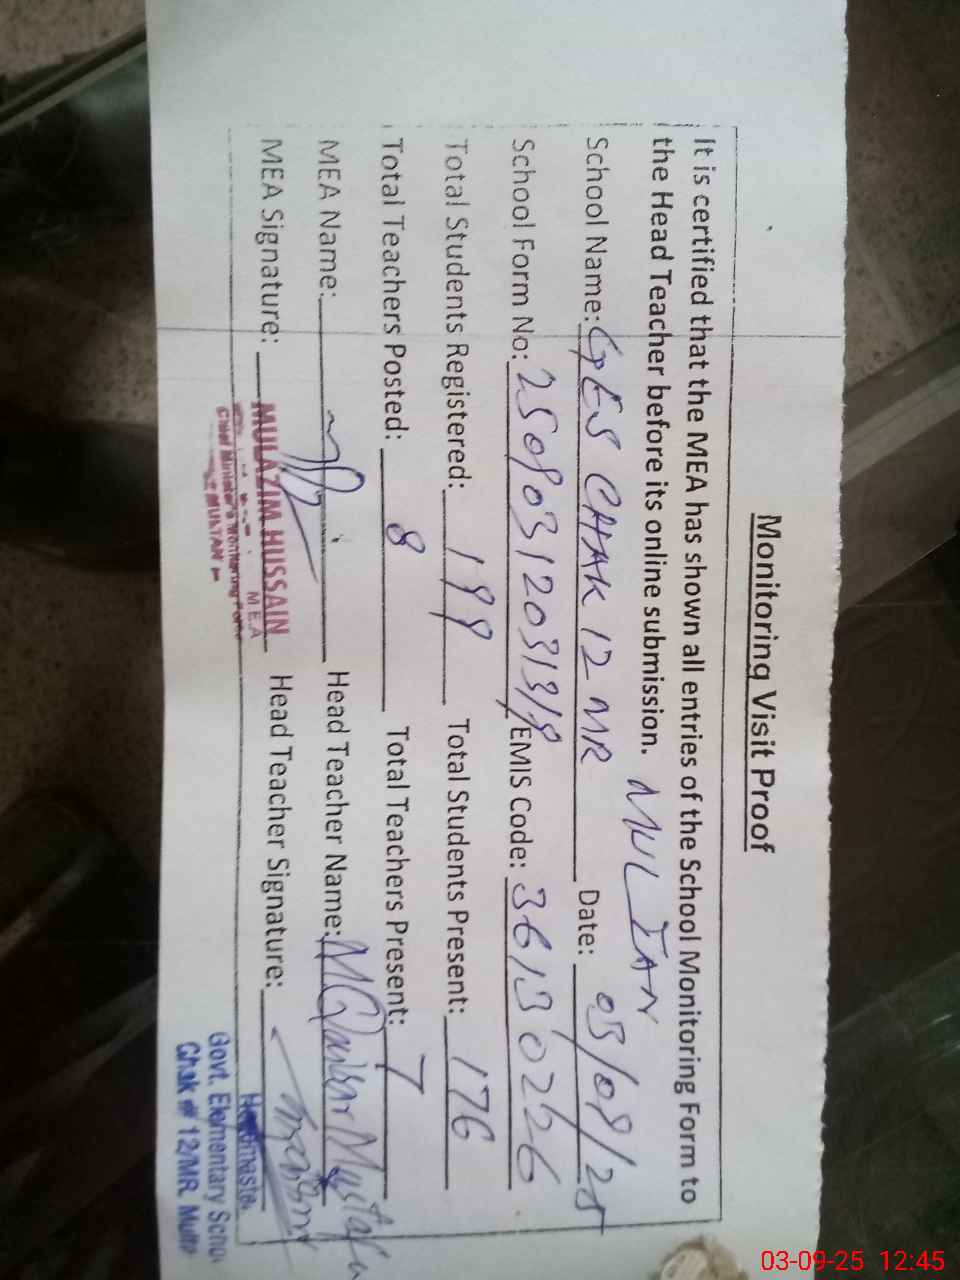 Monitoring Visit Proof
It is certified that the MEA has shown all entries of the School Monitoring Form to
the Head Teacher before its online submission. MULTAN
School Name: GES CHAK 12 MR Date: 03/09/25
School Form No: EMIS Code: 36130226
Total Students Registered: 199 Total Students Present: 176
Total Teachers Posted: 8 Total Teachers Present: 7
MEA Name: Head Teacher Name: M Qaisar Mustafa
MEA Signature: Head Teacher Signature:
MULAZIM HUSSAIN
M.E.A
Chief Minister's Monitoring Force
MULTAN
Headmaste
Govt. Elementary Schoo
Chak # 12/MR. Multa
03-09-25 12:45